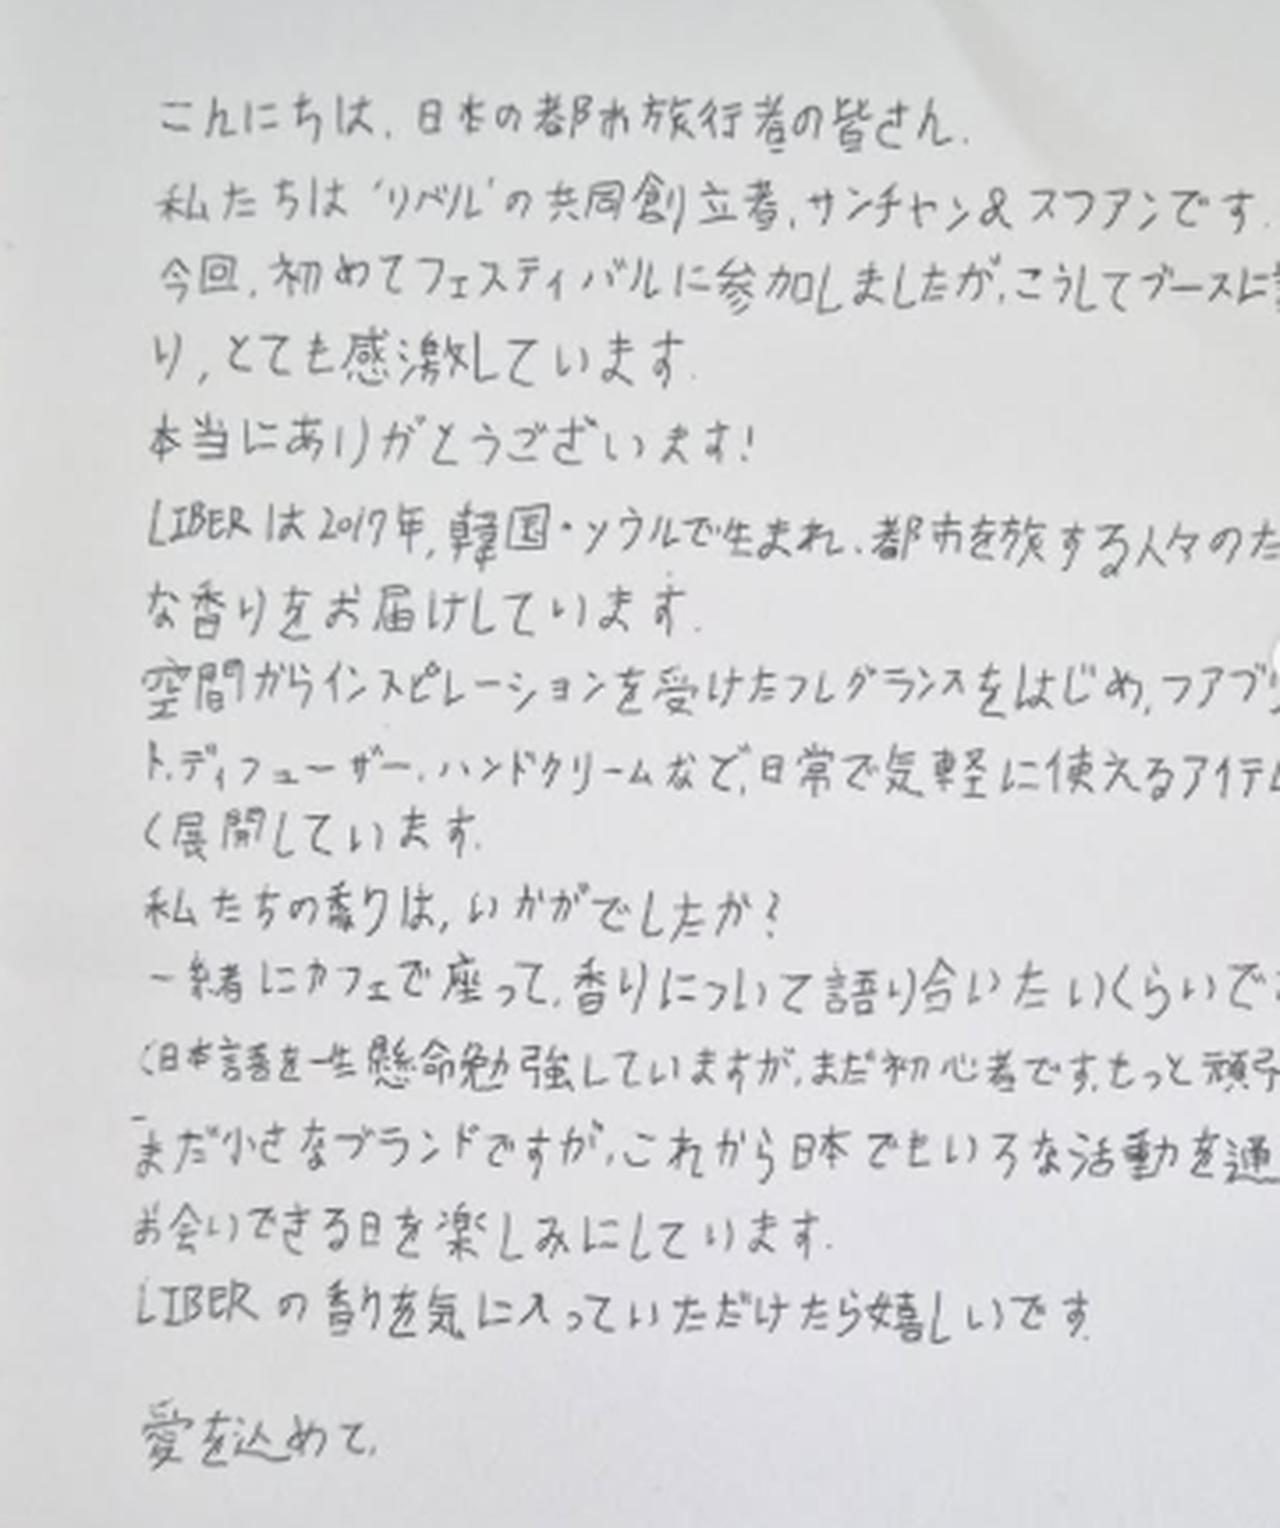 こんにちは、日本の都市旅行者の皆さん.
私たちは 'リベル' の共同創立者、サンチャン&スファンです.
今回、初めてフェスティバルに参加しましたが、こうしてブースに
り、とても感激しています.
本当にありがとうございます!
LIBERは2017年、韓国・ソウルで生まれ、都市を旅する人々のた
な香りをお届けしています.
空間からインスピレーションを受けたフレグランスをはじめ、ファブリ
ト、ディフューザー、ハンドクリームなど、日常で気軽に使えるアイテム
く展開しています.
私たちの香りは、いかがでしたか?
一緒にカフェで座って、香りについて語り合いたいくらいで
(日本語を一生懸命勉強していますが、まだ初心者です、もっと頑張
まだ小さなブランドですが、これから日本でもいろな活動を通
お会いできる日を楽しみにしています.
LIBERの香りを気に入っていただけたら嬉しいです.
愛を込めて、